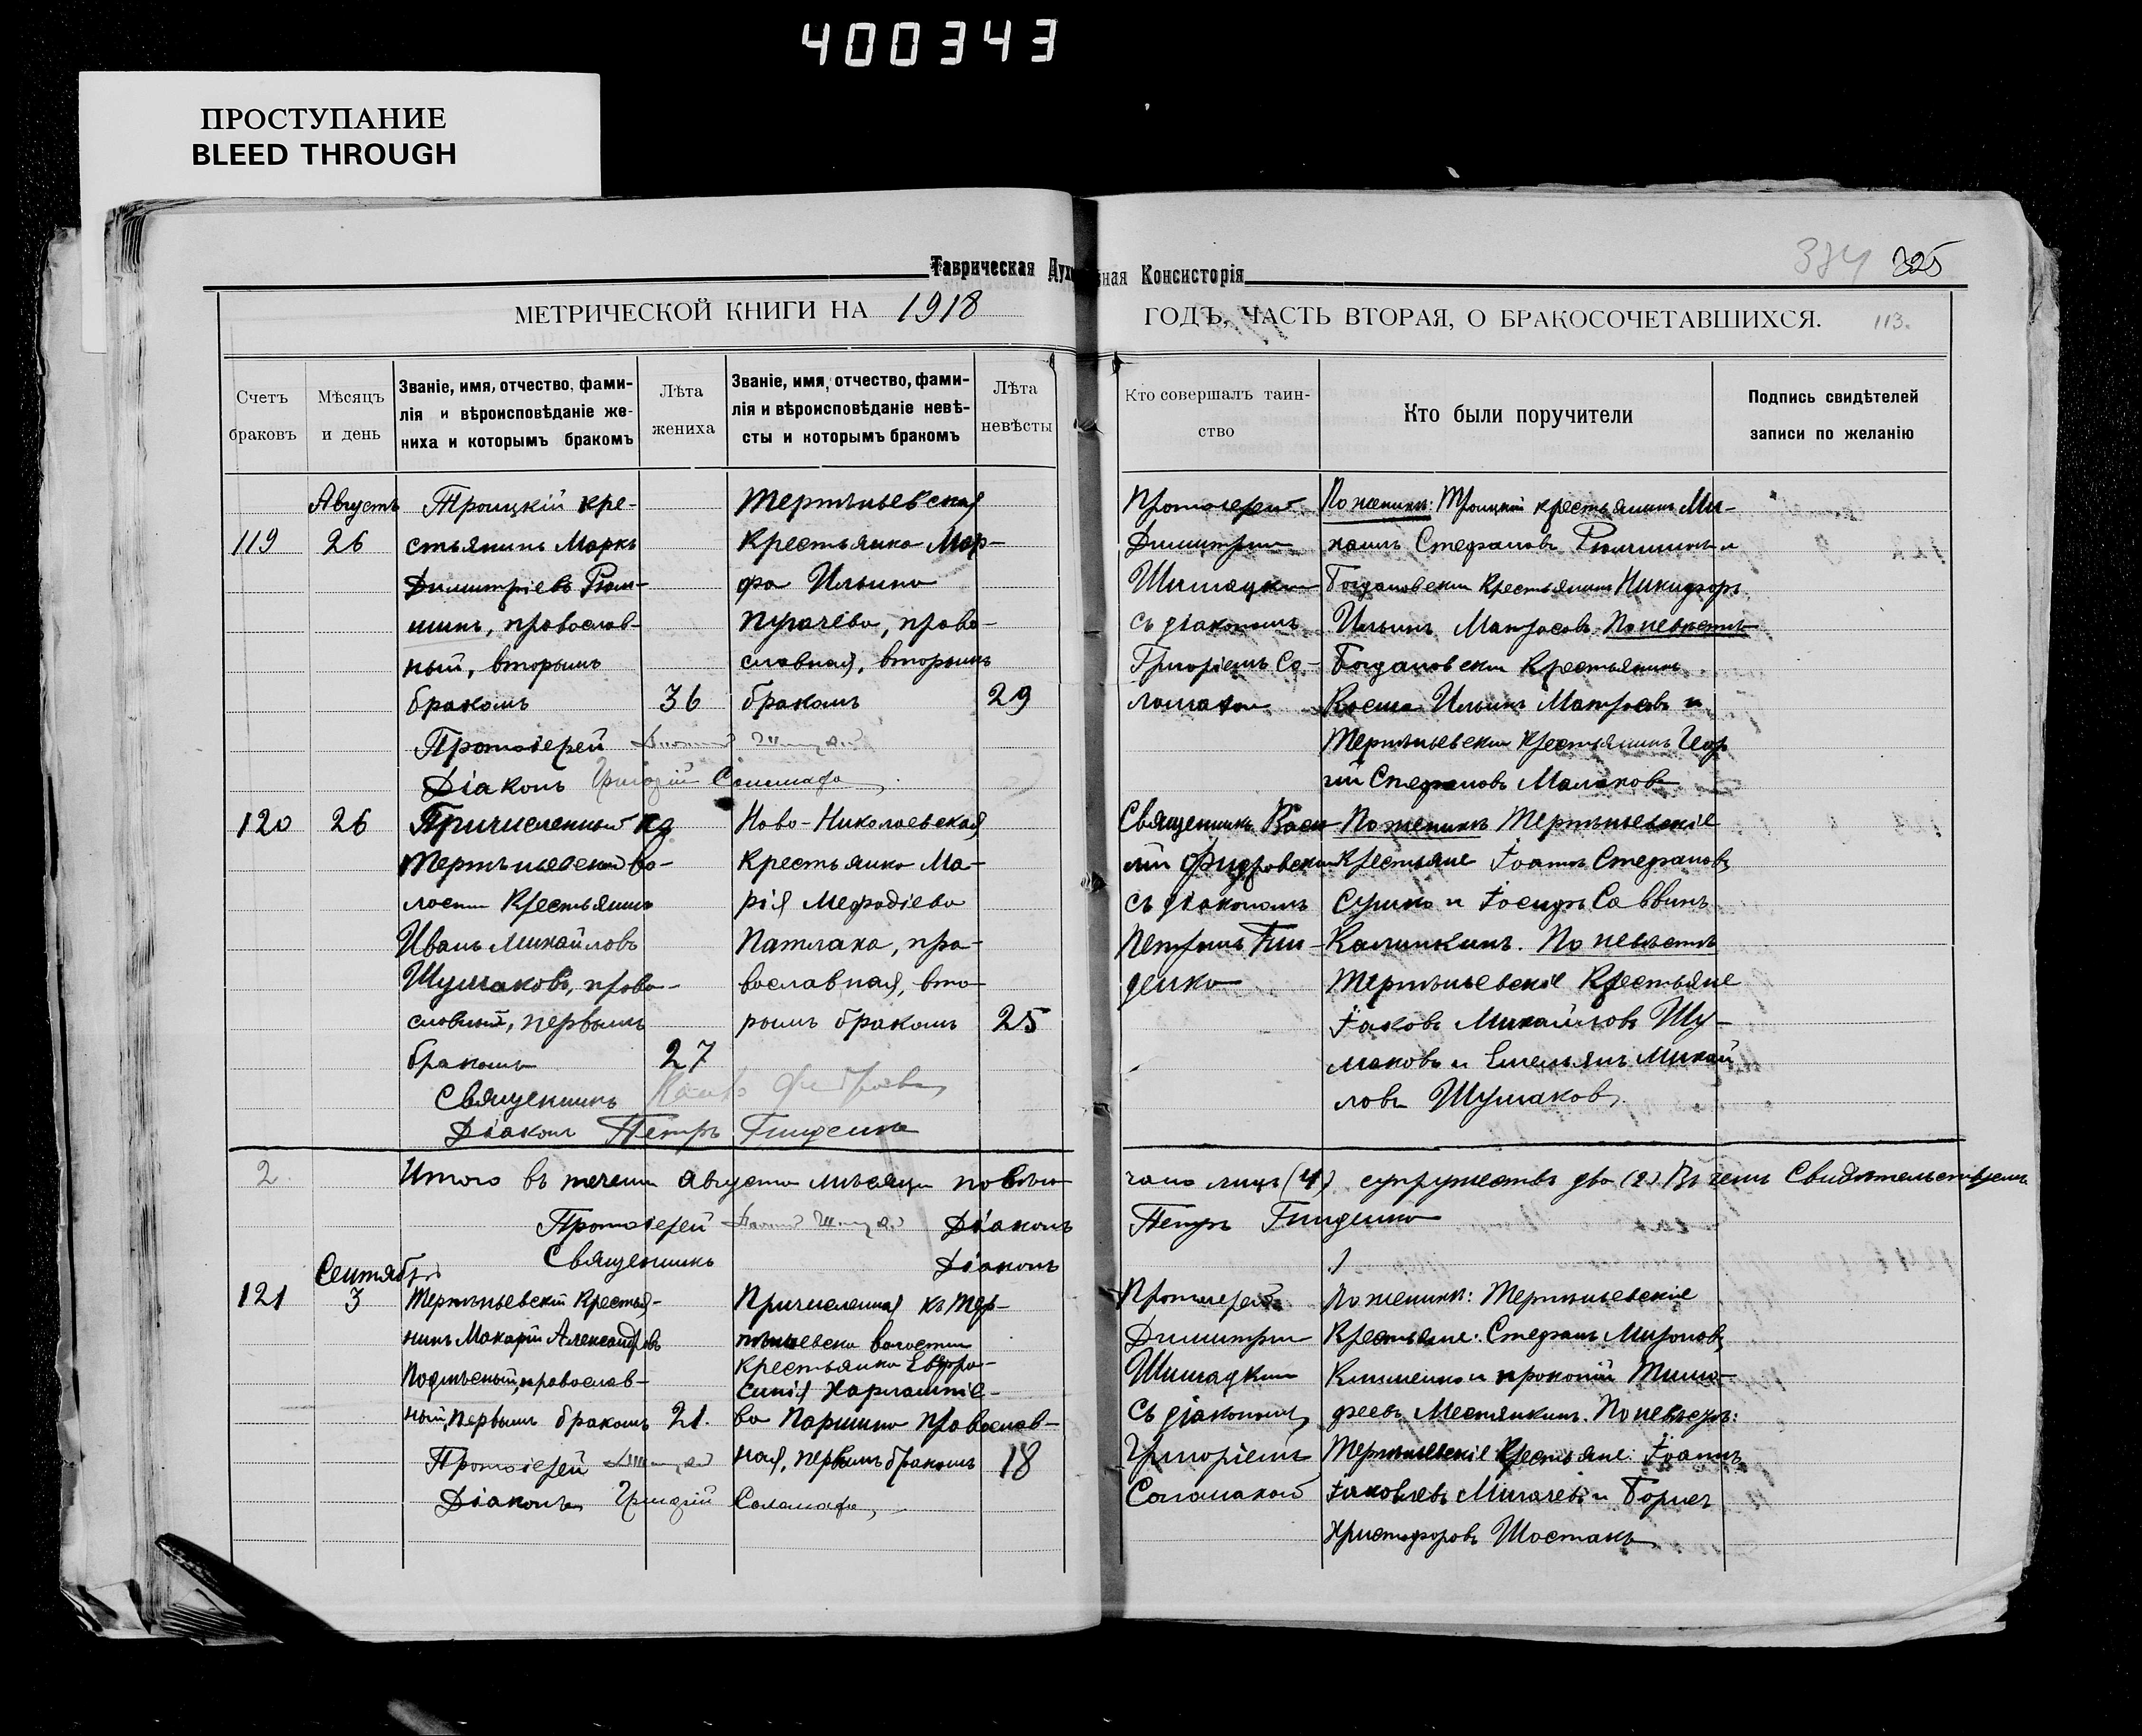 400343
ПРОСТУПАНИЕ
BLEED THROUGH
Таврическая Духовная Консисторія
334 325
МЕТРИЧЕСКОЙ КНИГИ НА 1918 ГОДЪ, ЧАСТЬ ВТОРАЯ, О БРАКОСОЧЕТАВШИХСЯ. 113.
Счетъ
браковъ
Мѣсяцъ
и день
Званіе, имя, отчество, фами-
лія и вѣроисповѣданіе же-
ниха и которымъ бракомъ
Лѣта
жениха
Званіе, имя, отчество, фами-
лія и вѣроисповѣданіе невѣ-
сты и которымъ бракомъ
Лѣта
невѣсты
Кто совершалъ таин-
ство
Кто были поручители
Подпись свидѣтелей
записи по желанію
119
Августъ
26
Троицкій кре-
стьянинъ Маркъ
Димитріевъ Рюм-
шинъ, православ-
ный, вторымъ
бракомъ
36
Терпѣньевская
крестьянка Мар-
фа Ильина
Пугачёва, право-
славная, вторымъ
бракомъ
29
Протоіерей
Димитрій
Шишацкій
съ діакономъ
Григоріемъ Са-
ламахой
По женихѣ: Троицкій крестьянинъ Ми-
хаилъ Стефановъ и
Богдановскій крестьянинъ Никифоръ
Ильинъ Матросовъ. По невѣстѣ
Богдановскій крестьянинъ
Косма Ильинъ Матросовъ и
Терпѣньевскій крестьянинъ Геор
гій Стефановъ Малаховъ
Протоіерей
Діаконъ Григорій Саламаха
120
26
Причисленный къ
Терпѣньевской во-
лости крестьянинъ
Иванъ Михайловъ
Шумаковъ, право-
славный, первымъ
бракомъ
27
Ново-Николаевская
крестьянка Ма-
рія Мефодіева
Патлаха, пра-
вославная, вто-
рымъ бракомъ
25
Священникъ Васи
лій
съ діакономъ
Петромъ Гни-
денко
По женихѣ Терпѣньевскіе
крестьяне Іоаннъ Стефановъ
Сушко и Іосифъ Саввинъ
Калинкинъ. По невѣстѣ
Терпѣньевскіе крестьяне
Іаковъ Михайловъ Шу-
маковъ и Емельянъ Михай
ловъ Шумаковъ.
Священникъ
Діаконъ Петръ Гниденко
2.
Итого въ теченіи августа мѣсяца повѣн
чано лицъ (4) супружествъ два (2) Въ чемъ свидѣтельствуемъ
Протоіерей Діаконъ Петръ Гниденко
Священникъ Діаконъ
121
Сентябрь
3
Терпѣньевскій крестья-
нинъ Макарій Александровъ
православ-
ный, первымъ бракомъ
21.
Причисленная къ Тер-
пѣньевской волости
крестьянка Евфро-
синія Харлампіе-
ва Паршина православ-
ная, первымъ бракомъ
18
Протоіерей
Димитрій
Шишацкій
съ діакономъ
Григоріемъ
Саламахой
По женихѣ: Терпѣньевскіе
крестьяне: Стефанъ Мироновъ
Клименко и Прокопій Тимо-
феевъ Местянкинъ. По невѣстѣ:
Терпѣньевскіе крестьяне: Іоаннъ
Іаковлевъ и Борисъ
Христофоровъ Шостакъ
Протоіерей
Діаконъ Григорій Саламаха